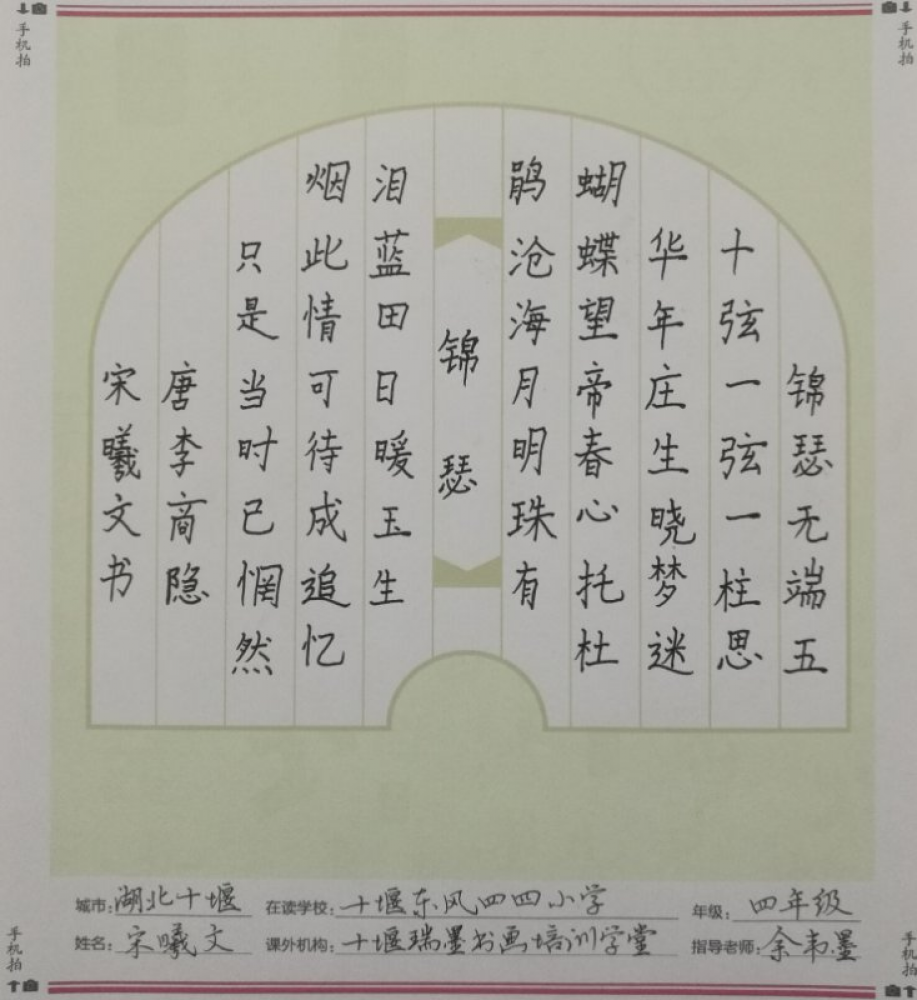 手机拍
手机拍
锦瑟无端五
十弦一弦一柱思
华年庄生晓梦迷
蝴蝶望帝春心托杜
鹃沧海月明珠有
锦瑟
泪蓝田日暖玉生
烟此情可待成追忆
只是当时已惘然
唐李商隐
宋曦文书
城市:湖北十堰 在读学校:十堰东风四四小学 年级:四年级
姓名:宋曦文 课外机构:十堰瑞墨书画培训学堂 指导老师:余韦墨
手机拍
手机拍